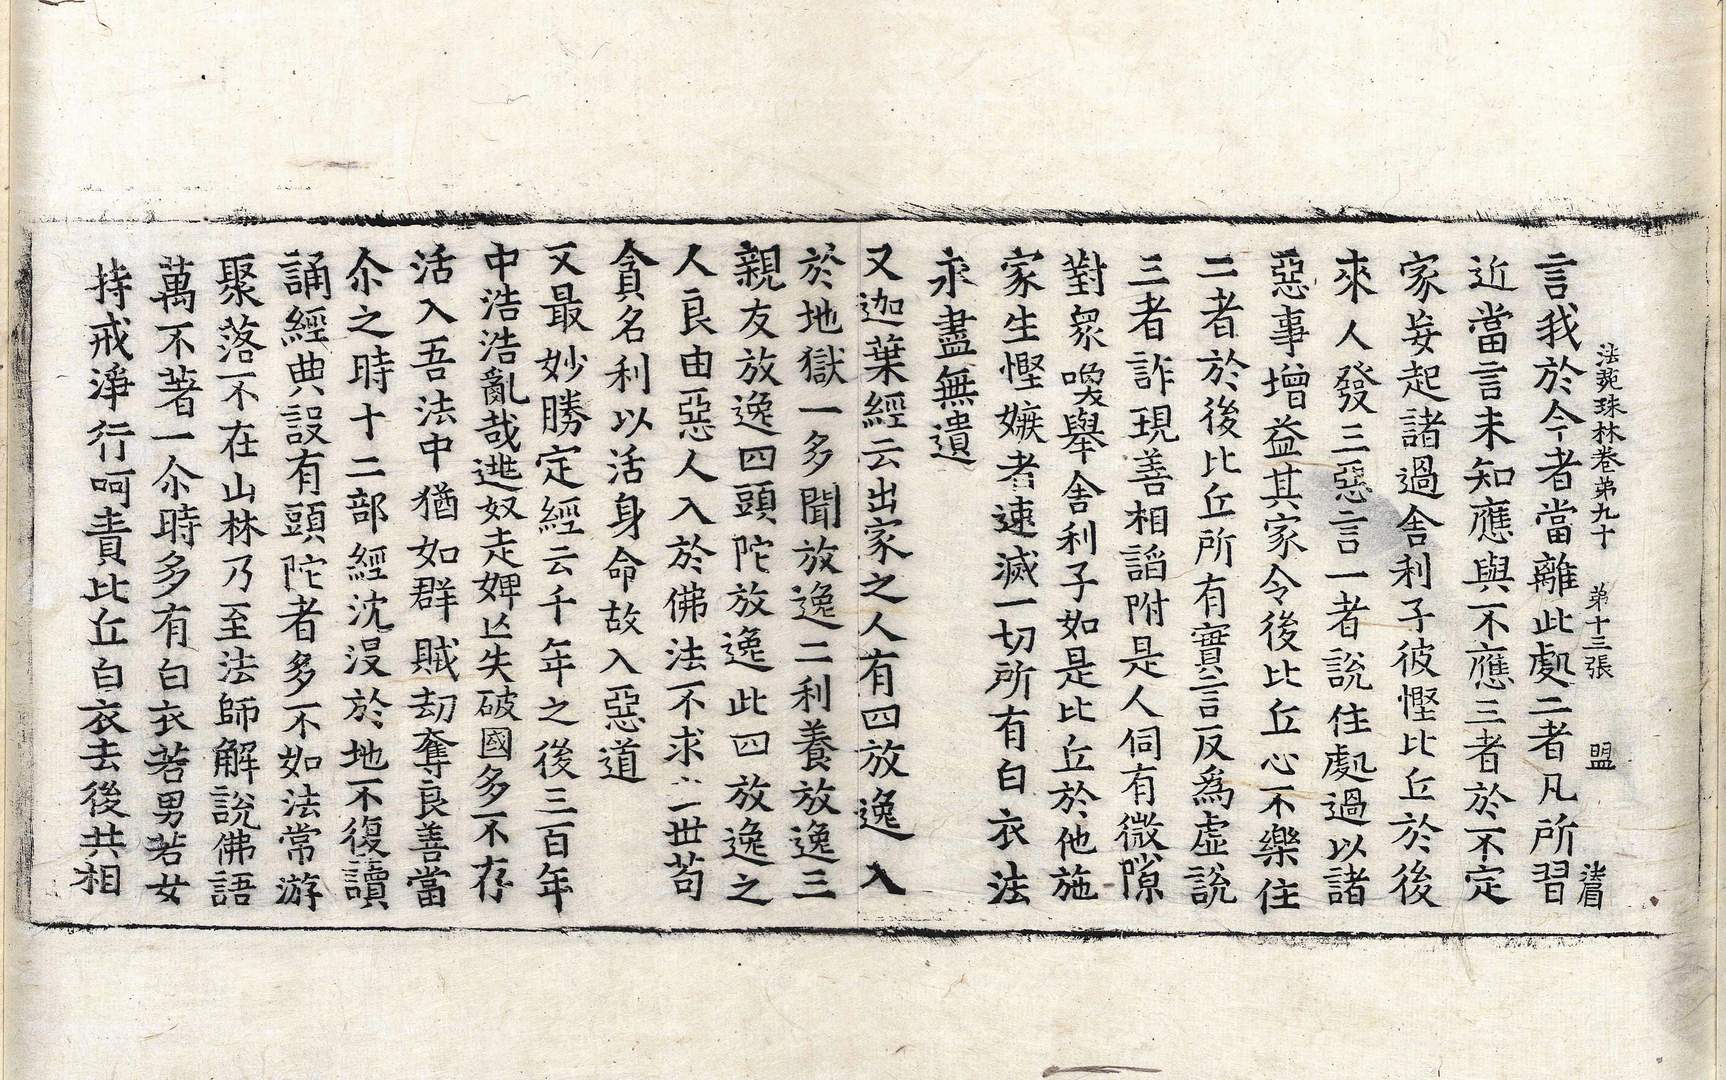 法苑珠林卷弟九十　弟十三張　盟　法眉
言我於今者當離此處二者凡所習
近當言未知應與不應三者於不定
家妄起諸過舍利子彼慳比丘於後
來人發三惡言一者說住處過以諸
惡事增益其家令後比丘心不樂住
二者於後比丘所有實言反爲虛說
三者詐現善相諂附是人伺有微隙
對衆喚舉舍利子如是比丘於他施
家生慳嫉者速滅一切所有白衣法
永盡無遺
又迦葉經云出家之人有四放逸入
於地獄一多聞放逸二利養放逸三
親友放逸四頭陀放逸此四放逸之
人良由惡人入於佛法不求出世苟
貪名利以活身命故入惡道
又最妙勝定經云千年之後三百年
中浩浩亂哉逃奴走婢亡失破國多不存
活入吾法中猶如群賊劫奪良善當
尒之時十二部經沈沒於地不復讀
誦經典設有頭陀者多不如法常游
聚落不在山林乃至法師解說佛語
萬不著一尒時多有白衣若男若女
持戒淨行呵責比丘白衣去後共相